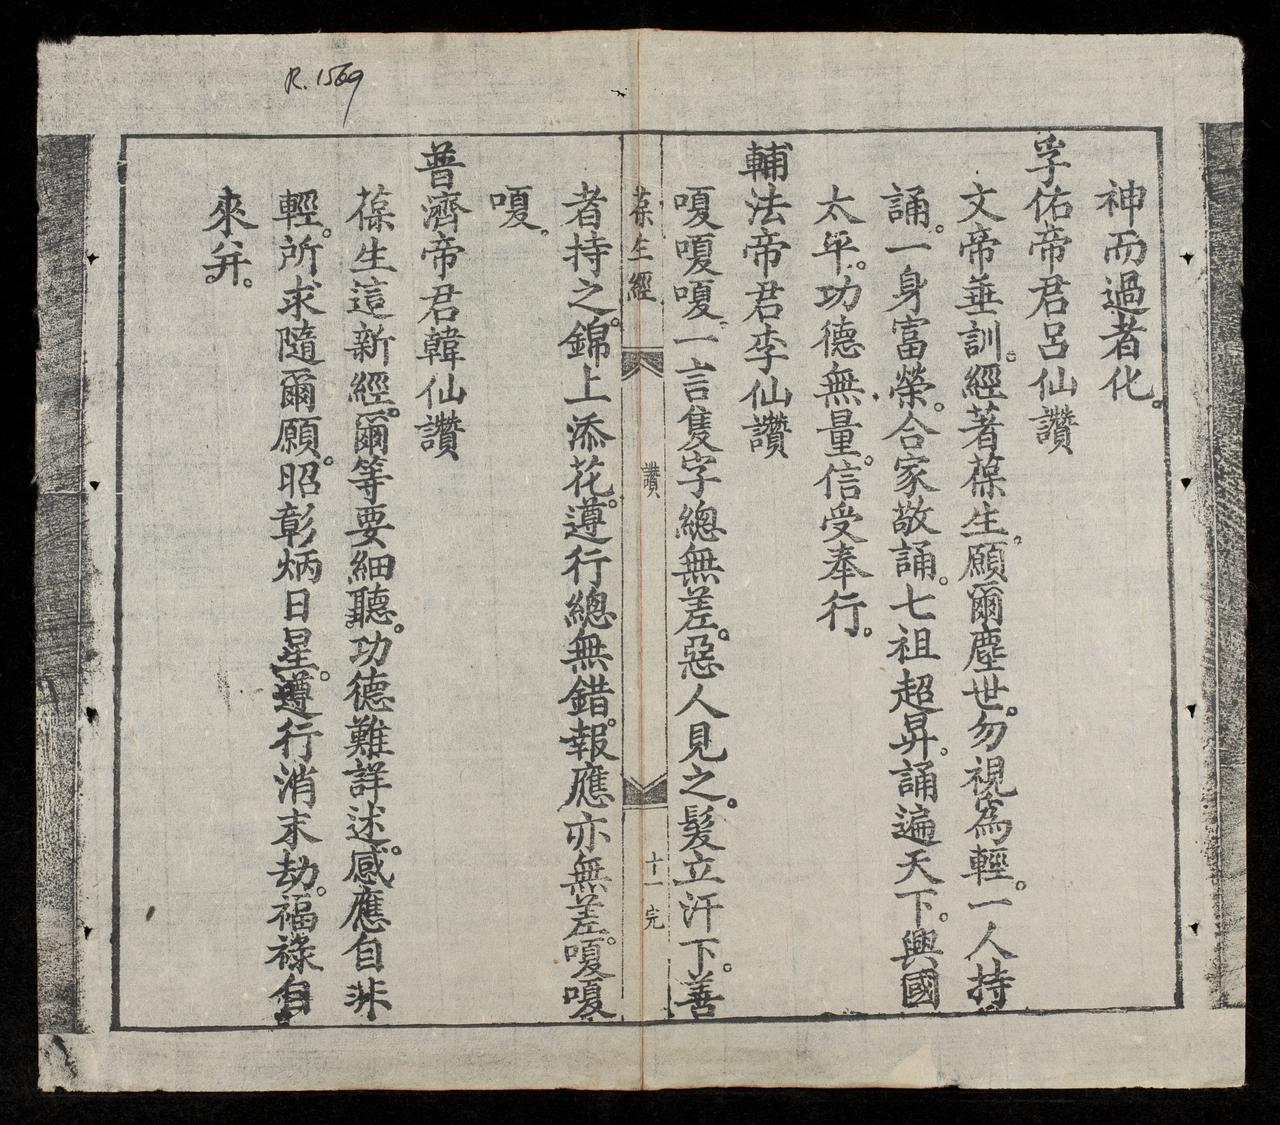 R. 1569
神而過者化。
孚佑帝君呂仙讚
文帝垂訓。經著葆生。願爾塵世。勿視為輕。一人持
誦。一身富榮。合家敬誦。七祖超昇。誦遍天下。興國
太平。功德無量。信受奉行。
輔法帝君李仙讚
嗄嗄嗄一言隻字總無差。惡人見之。髮立汗下。善
葆生經
讚
十一 完
者持之。錦上添花。遵行總無錯。報應亦無差。嗄嗄
嗄。
普濟帝君韓仙讚
葆生這新經。爾等要細聽。功德難詳述。感應自
輕。所求隨爾願。昭彰炳日星。遵行消末劫。福祿自
來并。